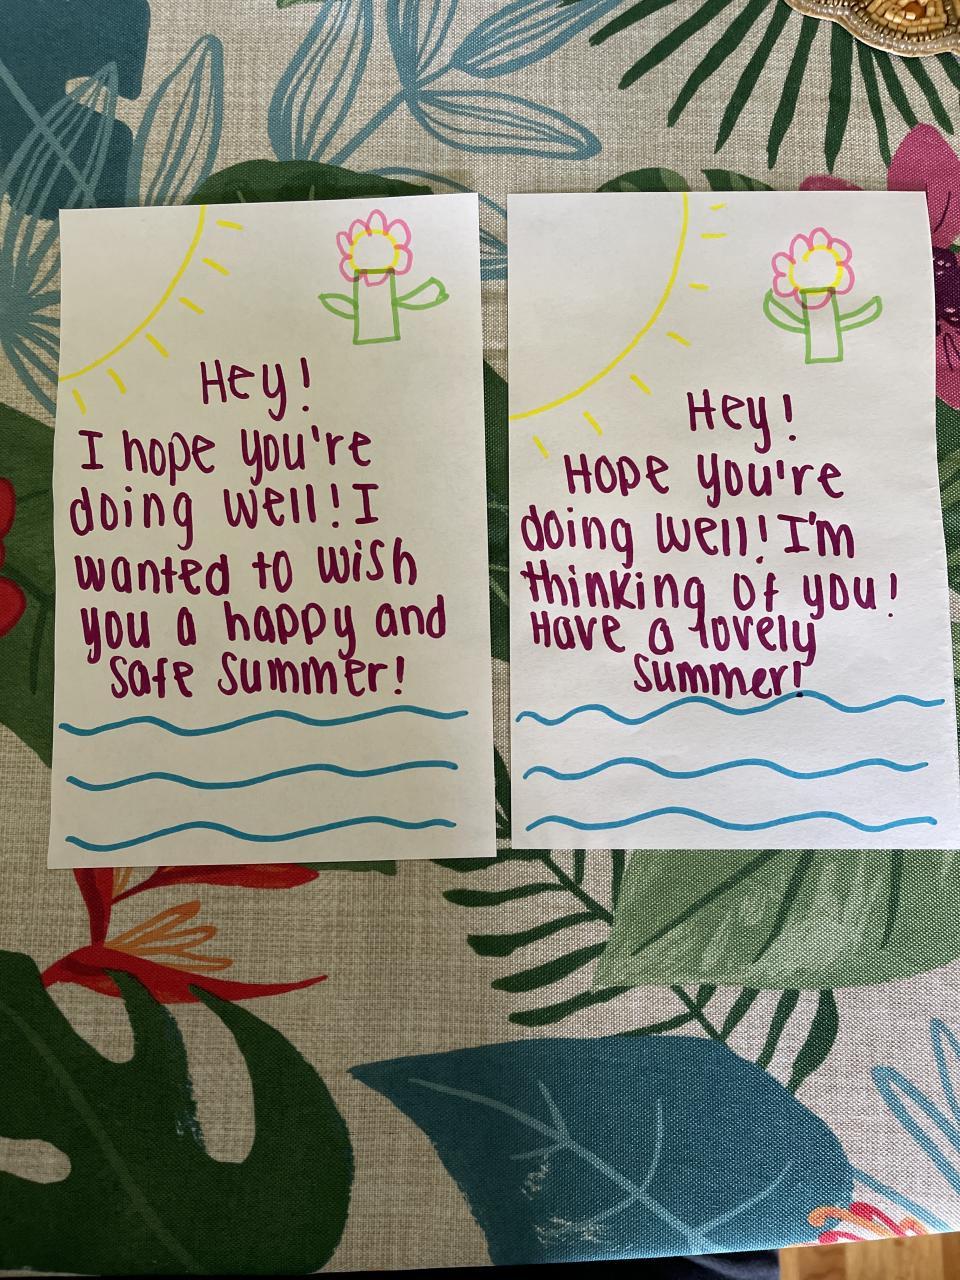 Hey!
I hope you're
doing well! I
wanted to wish
you a happy and
safe summer!
Hey!
Hope you're
doing well! I'm
thinking of you!
Have a lovely
summer!